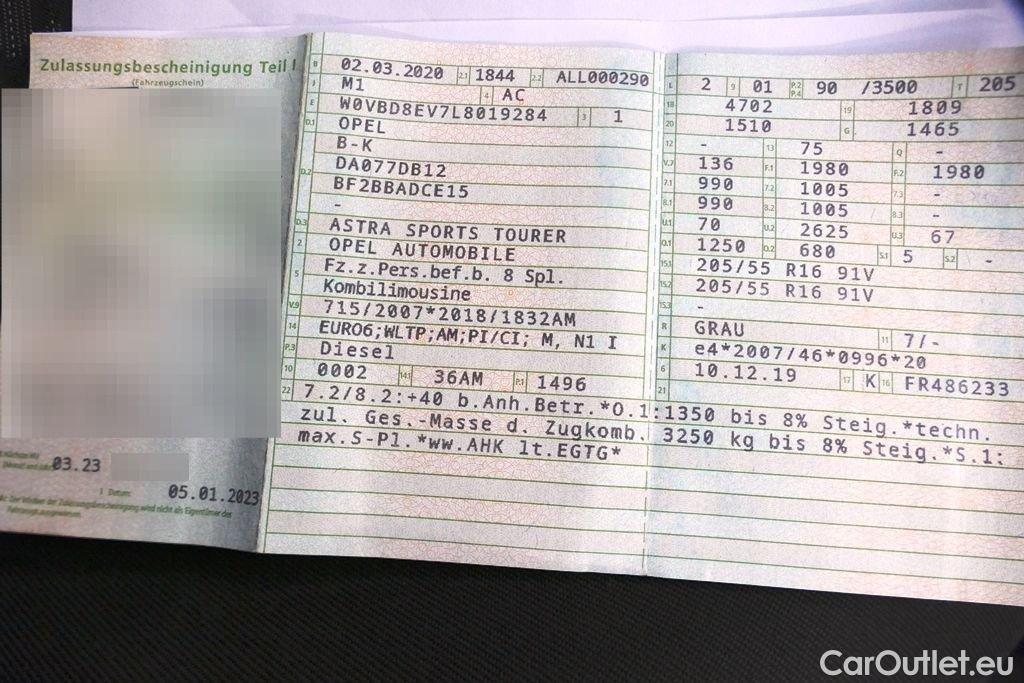 Zulassungsbescheinigung Teil I
(Fahrzeugschein)
03.23
I Datum: 05.01.2023
Fahrzeugzugewiesen.
B 02.03.2020 2.1 1844 2.2 ALL000290
J M1 4 AC
E W0VBD8EV7L8019284 3 1
D.1 OPEL
B-K
D.2 DA077DB12
BF2BBADCE15
-
D.3 ASTRA SPORTS TOURER
2 OPEL AUTOMOBILE
5 Fz.z.Pers.bef.b. 8 Spl.
Kombilimousine
V.9 715/2007*2018/1832AM
14 EURO6;WLTP;AM;PI/CI; M, N1 I
P.3 Diesel
10 0002 14.1 36AM P.1 1496
L 2 9 01 P.2 P.4 90 /3500 T 205
18 4702 19 1809
20 1510 G 1465
12 - 13 75 Q -
V.7 136 F.1 1980 F.2 1980
7.1 990 7.2 1005 7.3 -
8.1 990 8.2 1005 8.3 -
U.1 70 U.2 2625 U.3 67
O.1 1250 O.2 680 S.1 5 S.2 -
15.1 205/55 R16 91V
15.2 205/55 R16 91V
15.3 -
R GRAU 11 7/-
K e4*2007/46*0996*20
6 10.12.19 17 K 16 FR486233
21
22 7.2/8.2:+40 b.Anh.Betr.*O.1:1350 bis 8% Steig.*techn.
zul. Ges.-Masse d. Zugkomb. 3250 kg bis 8% Steig.*S.1:
max.S-Pl.*ww.AHK lt.EGTG*
CarOutlet.eu